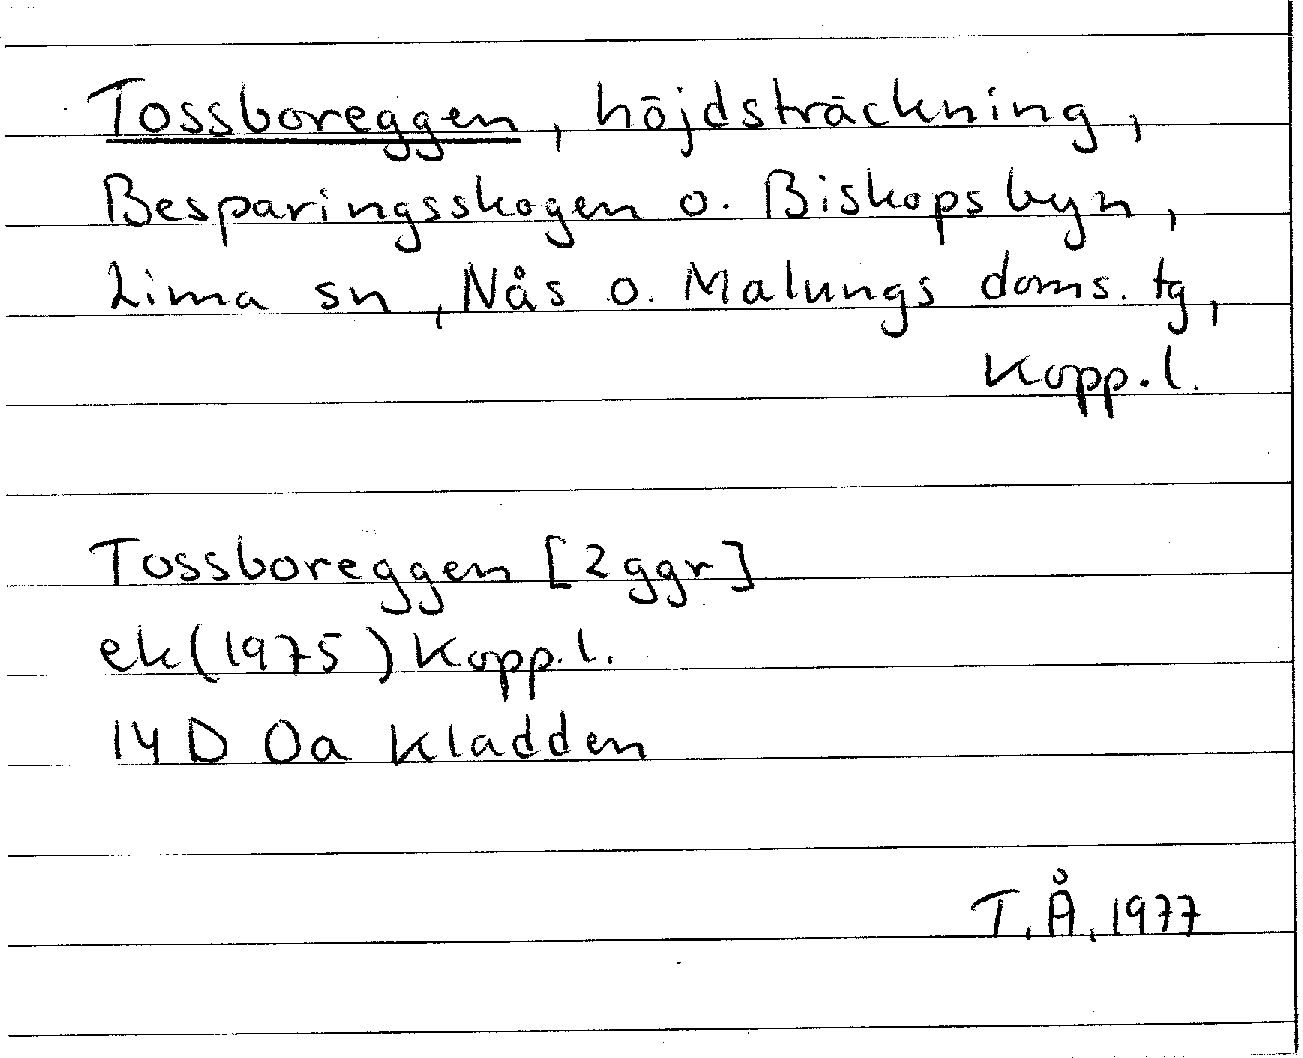 Tossboreggen, höjdsträckning,
Besparingsskogen o. Biskopsbyn,
Lima sn, Nås o. Malungs doms. tg,
Kopp.l.
Tossboreggen [2 ggr]
ek (1975) Kopp.l.
14 D 0a Kladden
T.Å. 1977